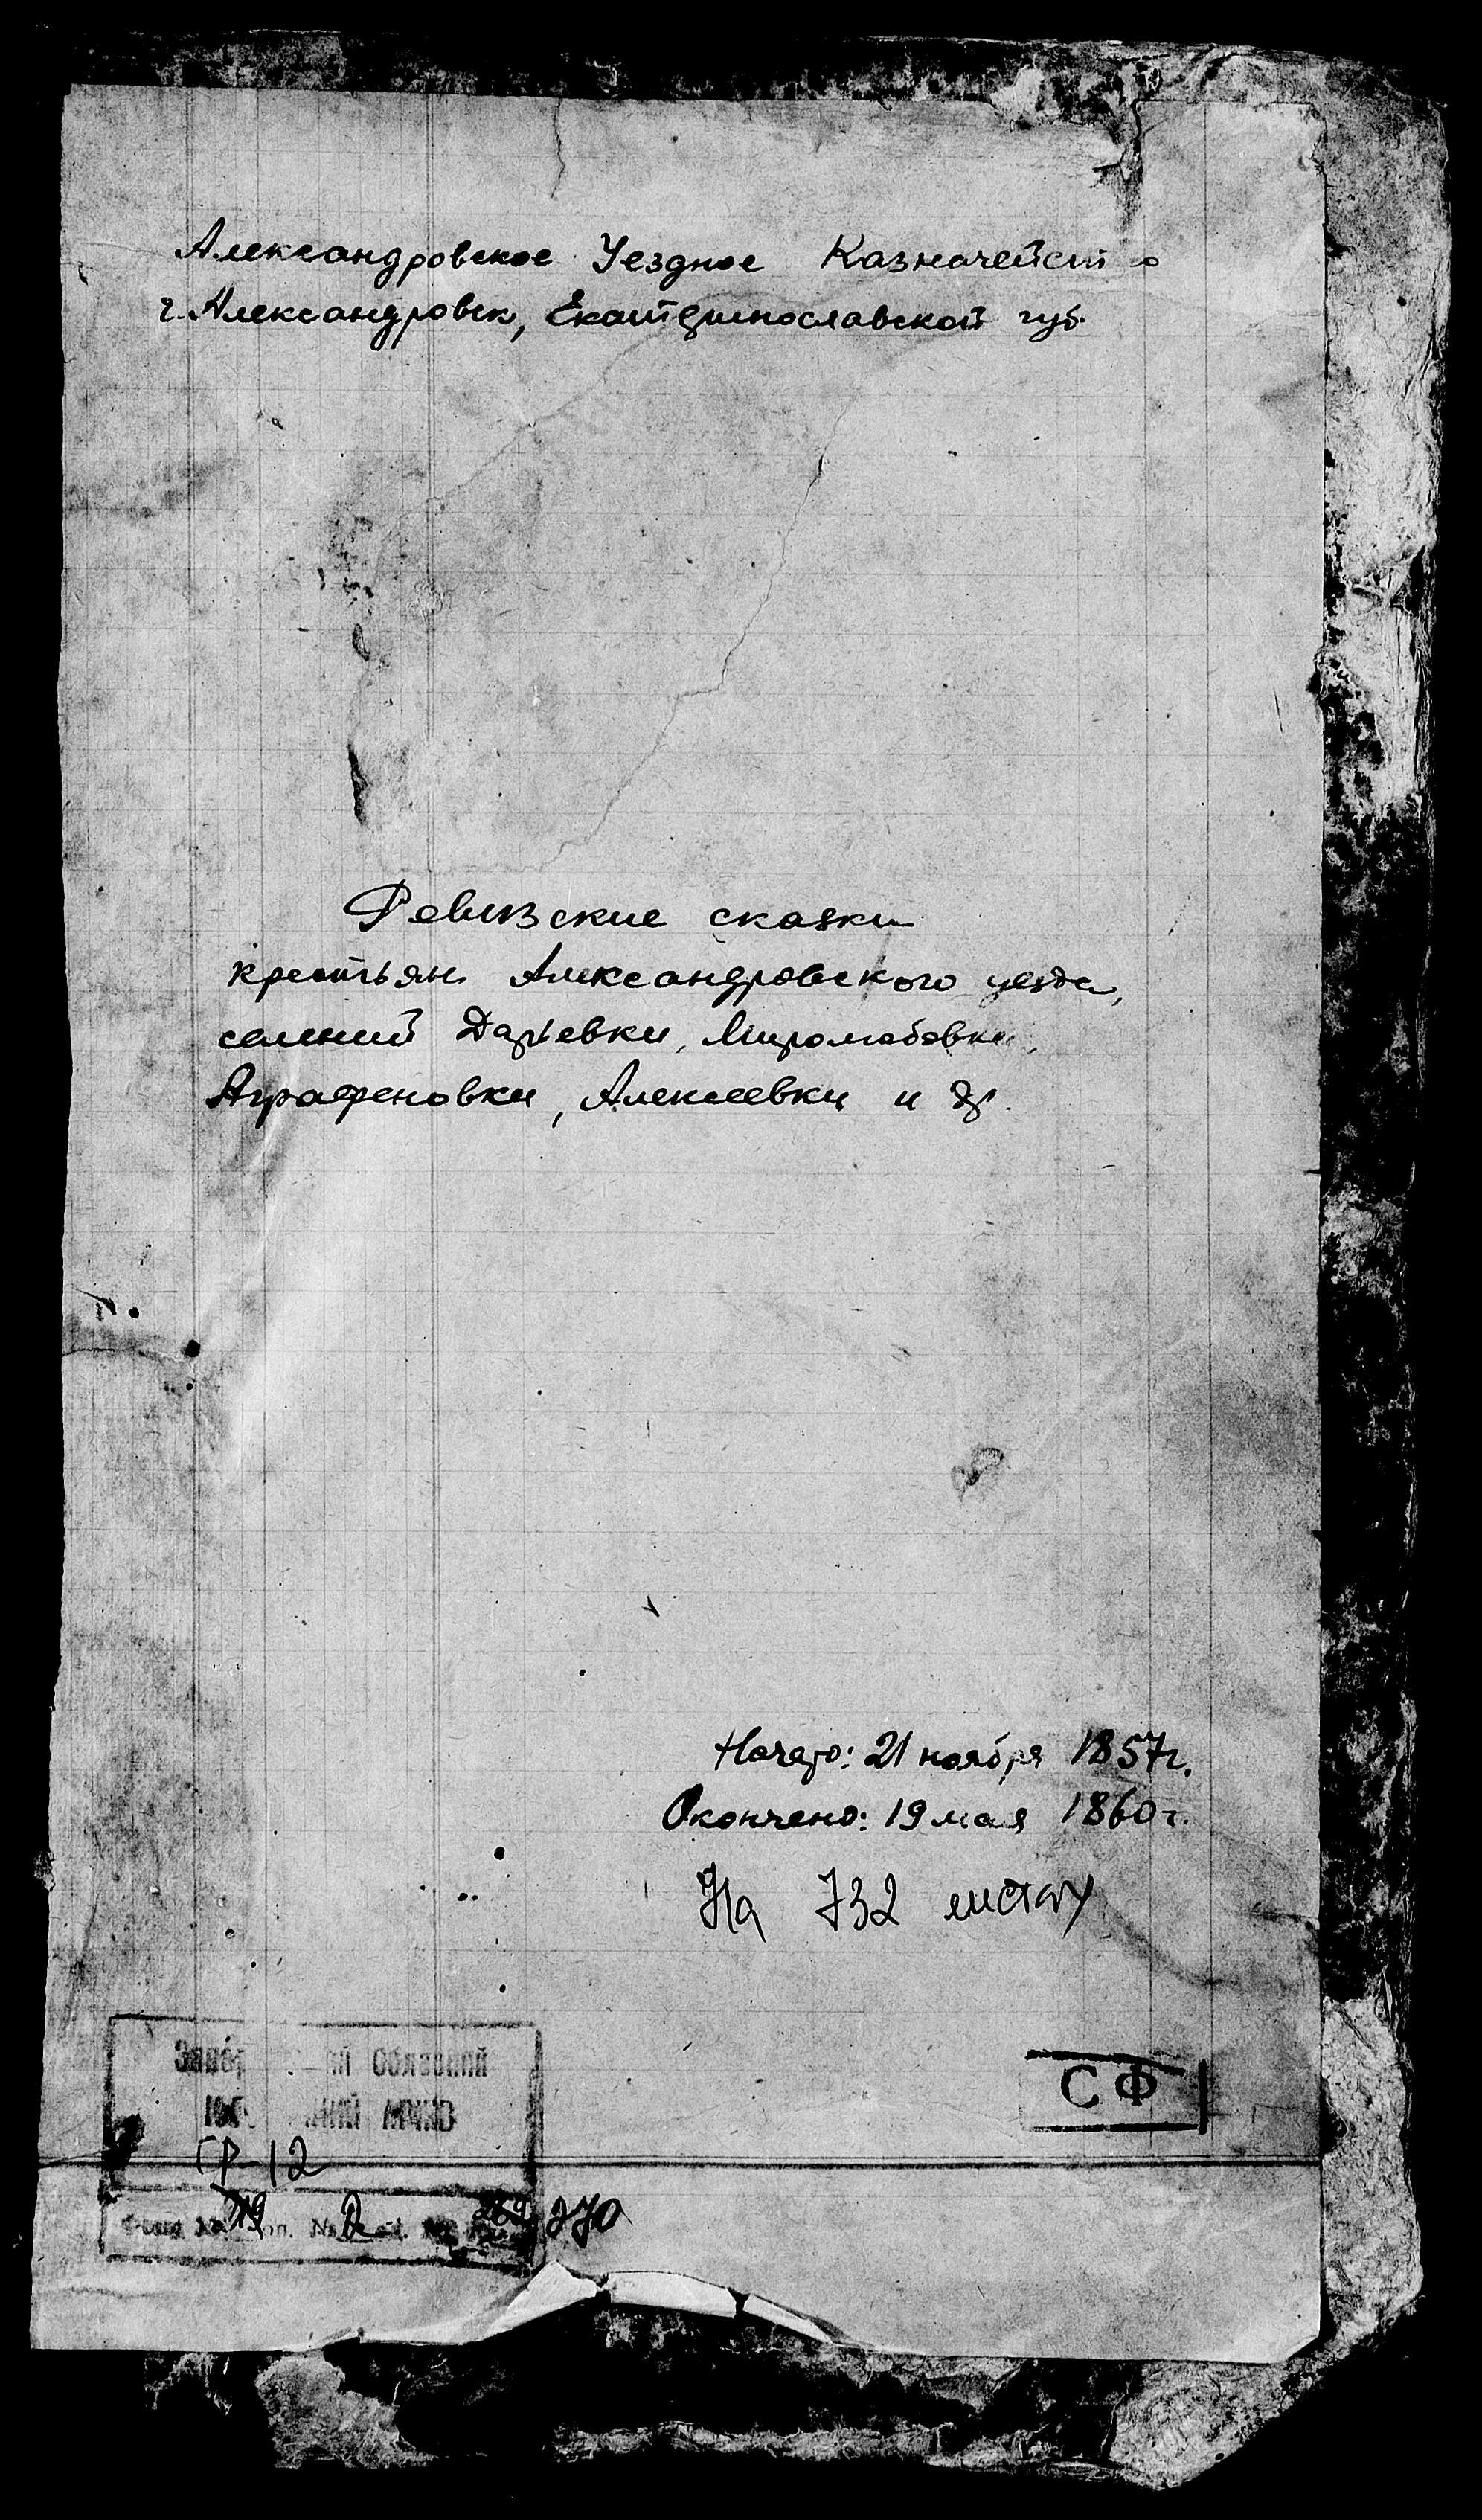 Александровское Уездное Казначейст о
г. Александровск, Екатеринославской губ.
Ревизские сказки
крестьян Александровского уезда,
селений Дарьевки, Миролюбовки,
Аграфеновки, Алексеевки и др.
Начато: 21 ноября 1857г.
Окончено: 19 мая 1860г.
На 732 листах
СФ
ий Обласний
АРХІВ
Р-12
Фонд № 19 оп. № 2 270